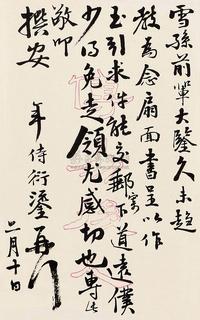 雪孫前輩大鑒久未趨
教為念扇面書呈以作
玉引求件能交郵寄下道遠僕
少得免走領尤感切也專此
敬叩
撰安
年侍衍鎏再
二月十日